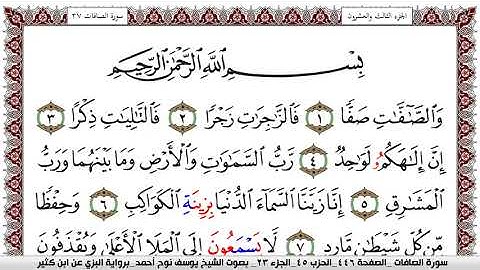 الجزء الثالث والعشرون سورة الصافات ٣٧
بِسْمِ اللَّهِ الرَّحْمَٰنِ الرَّحِيمِ
وَالصَّافَّاتِ صَفًّا ١ فَالزَّاجِرَاتِ زَجْرًا ٢ فَالتَّالِيَاتِ ذِكْرًا ٣
إِنَّ إِلَٰهَكُمُۥ لَوَاحِدٌ ٤ رَبُّ السَّمَاوَاتِ وَالْأَرْضِ وَمَا بَيْنَهُمَا وَرَبُّ
الْمَشَارِقِ ٥ إِنَّا زَيَّنَّا السَّمَاءَ الدُّنْيَا بِزِينَةِ الْكَوَاكِبِ ٦ وَحِفْظًا
مِّن كُلِّ شَيْطَانٍ مَّارِدٍ ٧ لَا يَسْمَعُونَ إِلَى الْمَلَإِ الْأَعْلَىٰ وَيُقْذَفُونَ
سورة الصافات _الصفحة ٤٤٦_الحزب ٤٥_الجزء ٢٣_ بصوت الشيخ يوسف نوح أحمد_برواية البزي عن ابن كثير